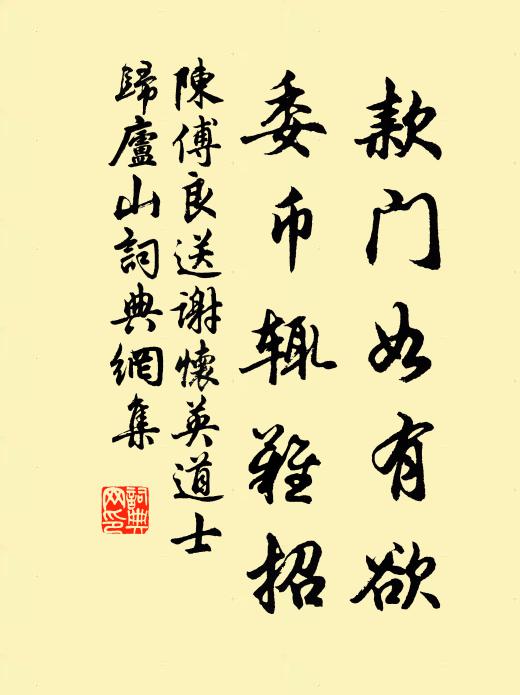 款门如有欲
委币辄难招
陳傅良送謝懷英道士
歸廬山詞典網集
詞典网印